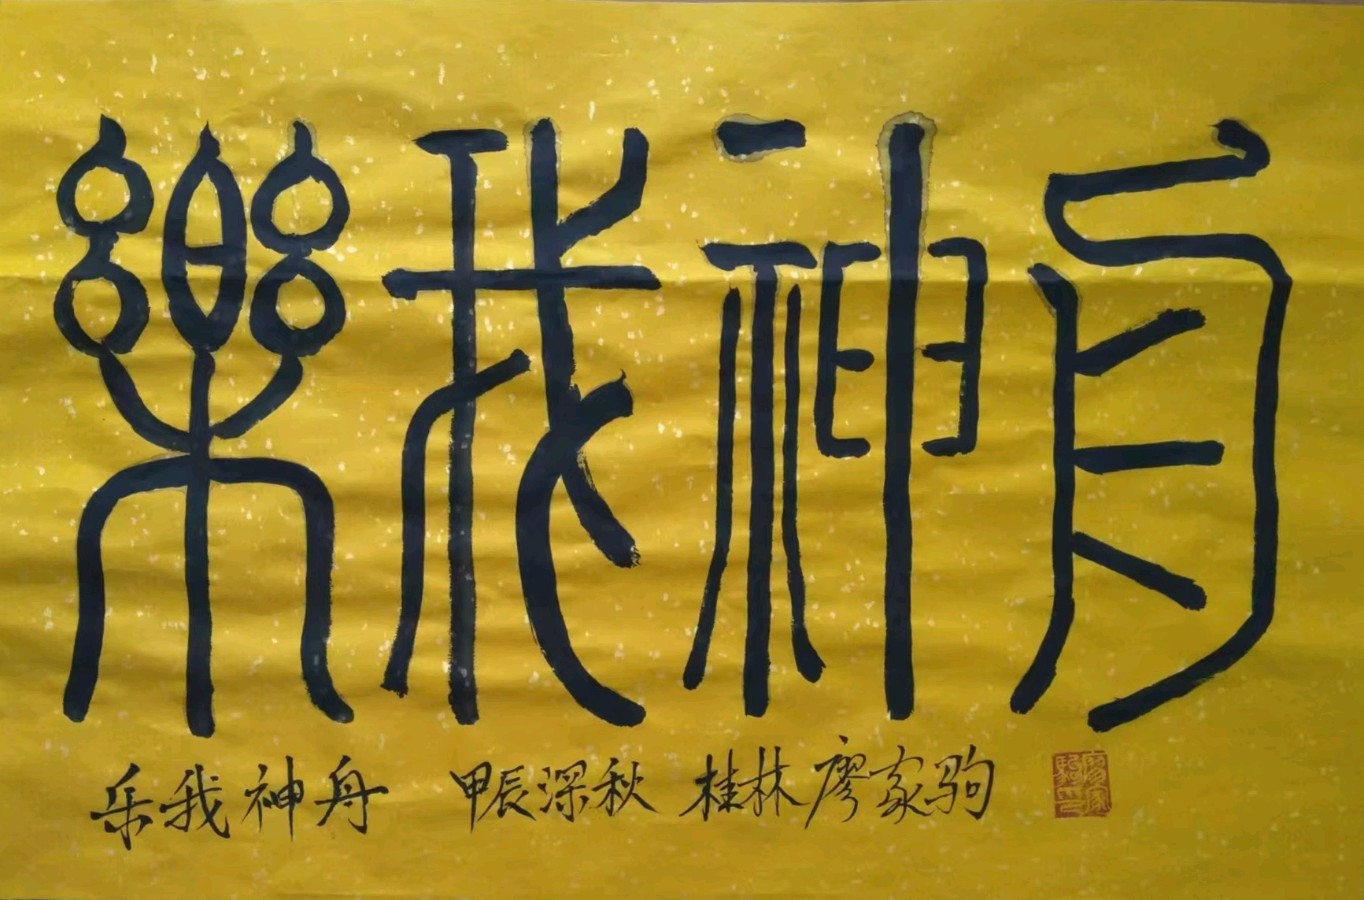 樂我神舟
乐我神舟 甲辰深秋 桂林廖家驹